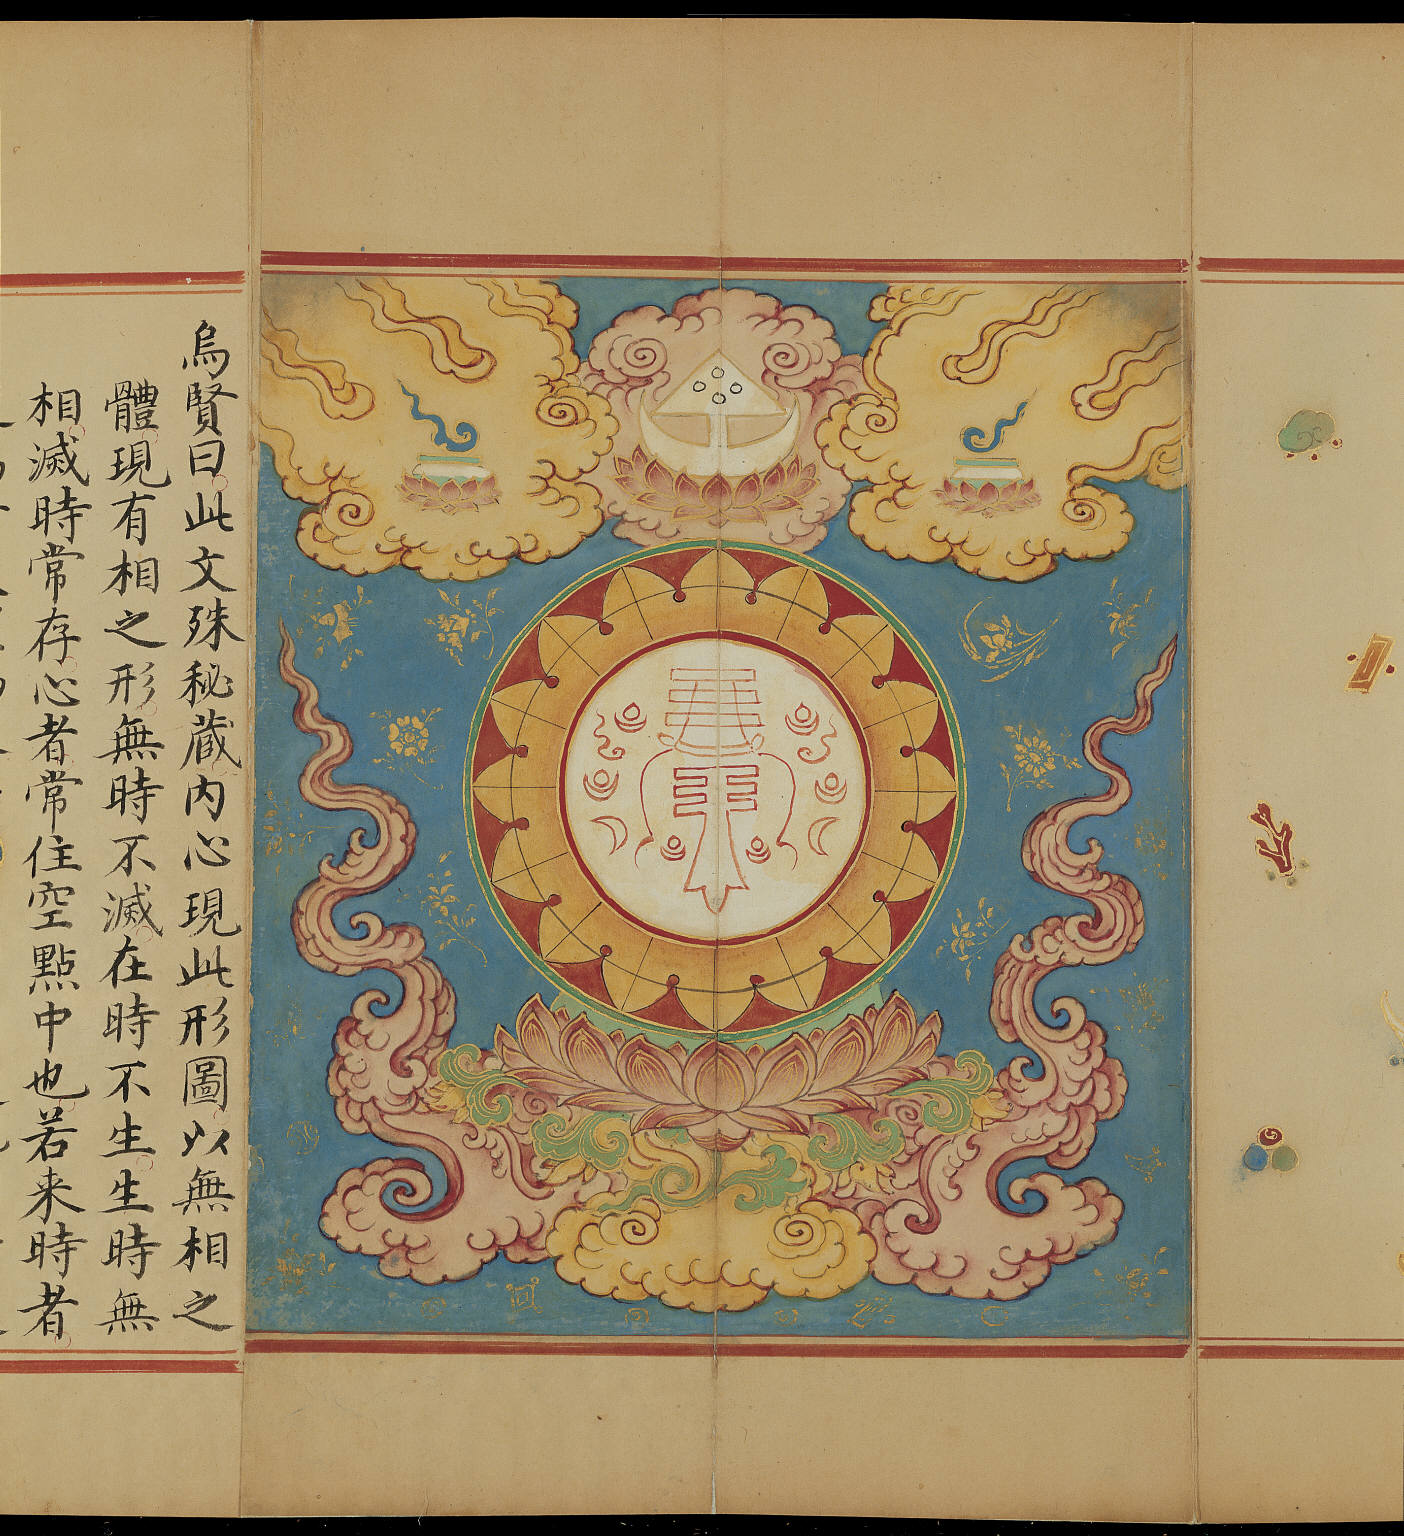 烏賢曰此文殊秘蔵内心現此形圖以無相之
體現有相之形無時不滅在時不生生時無
相滅時常存心者常住空點中也若来時者